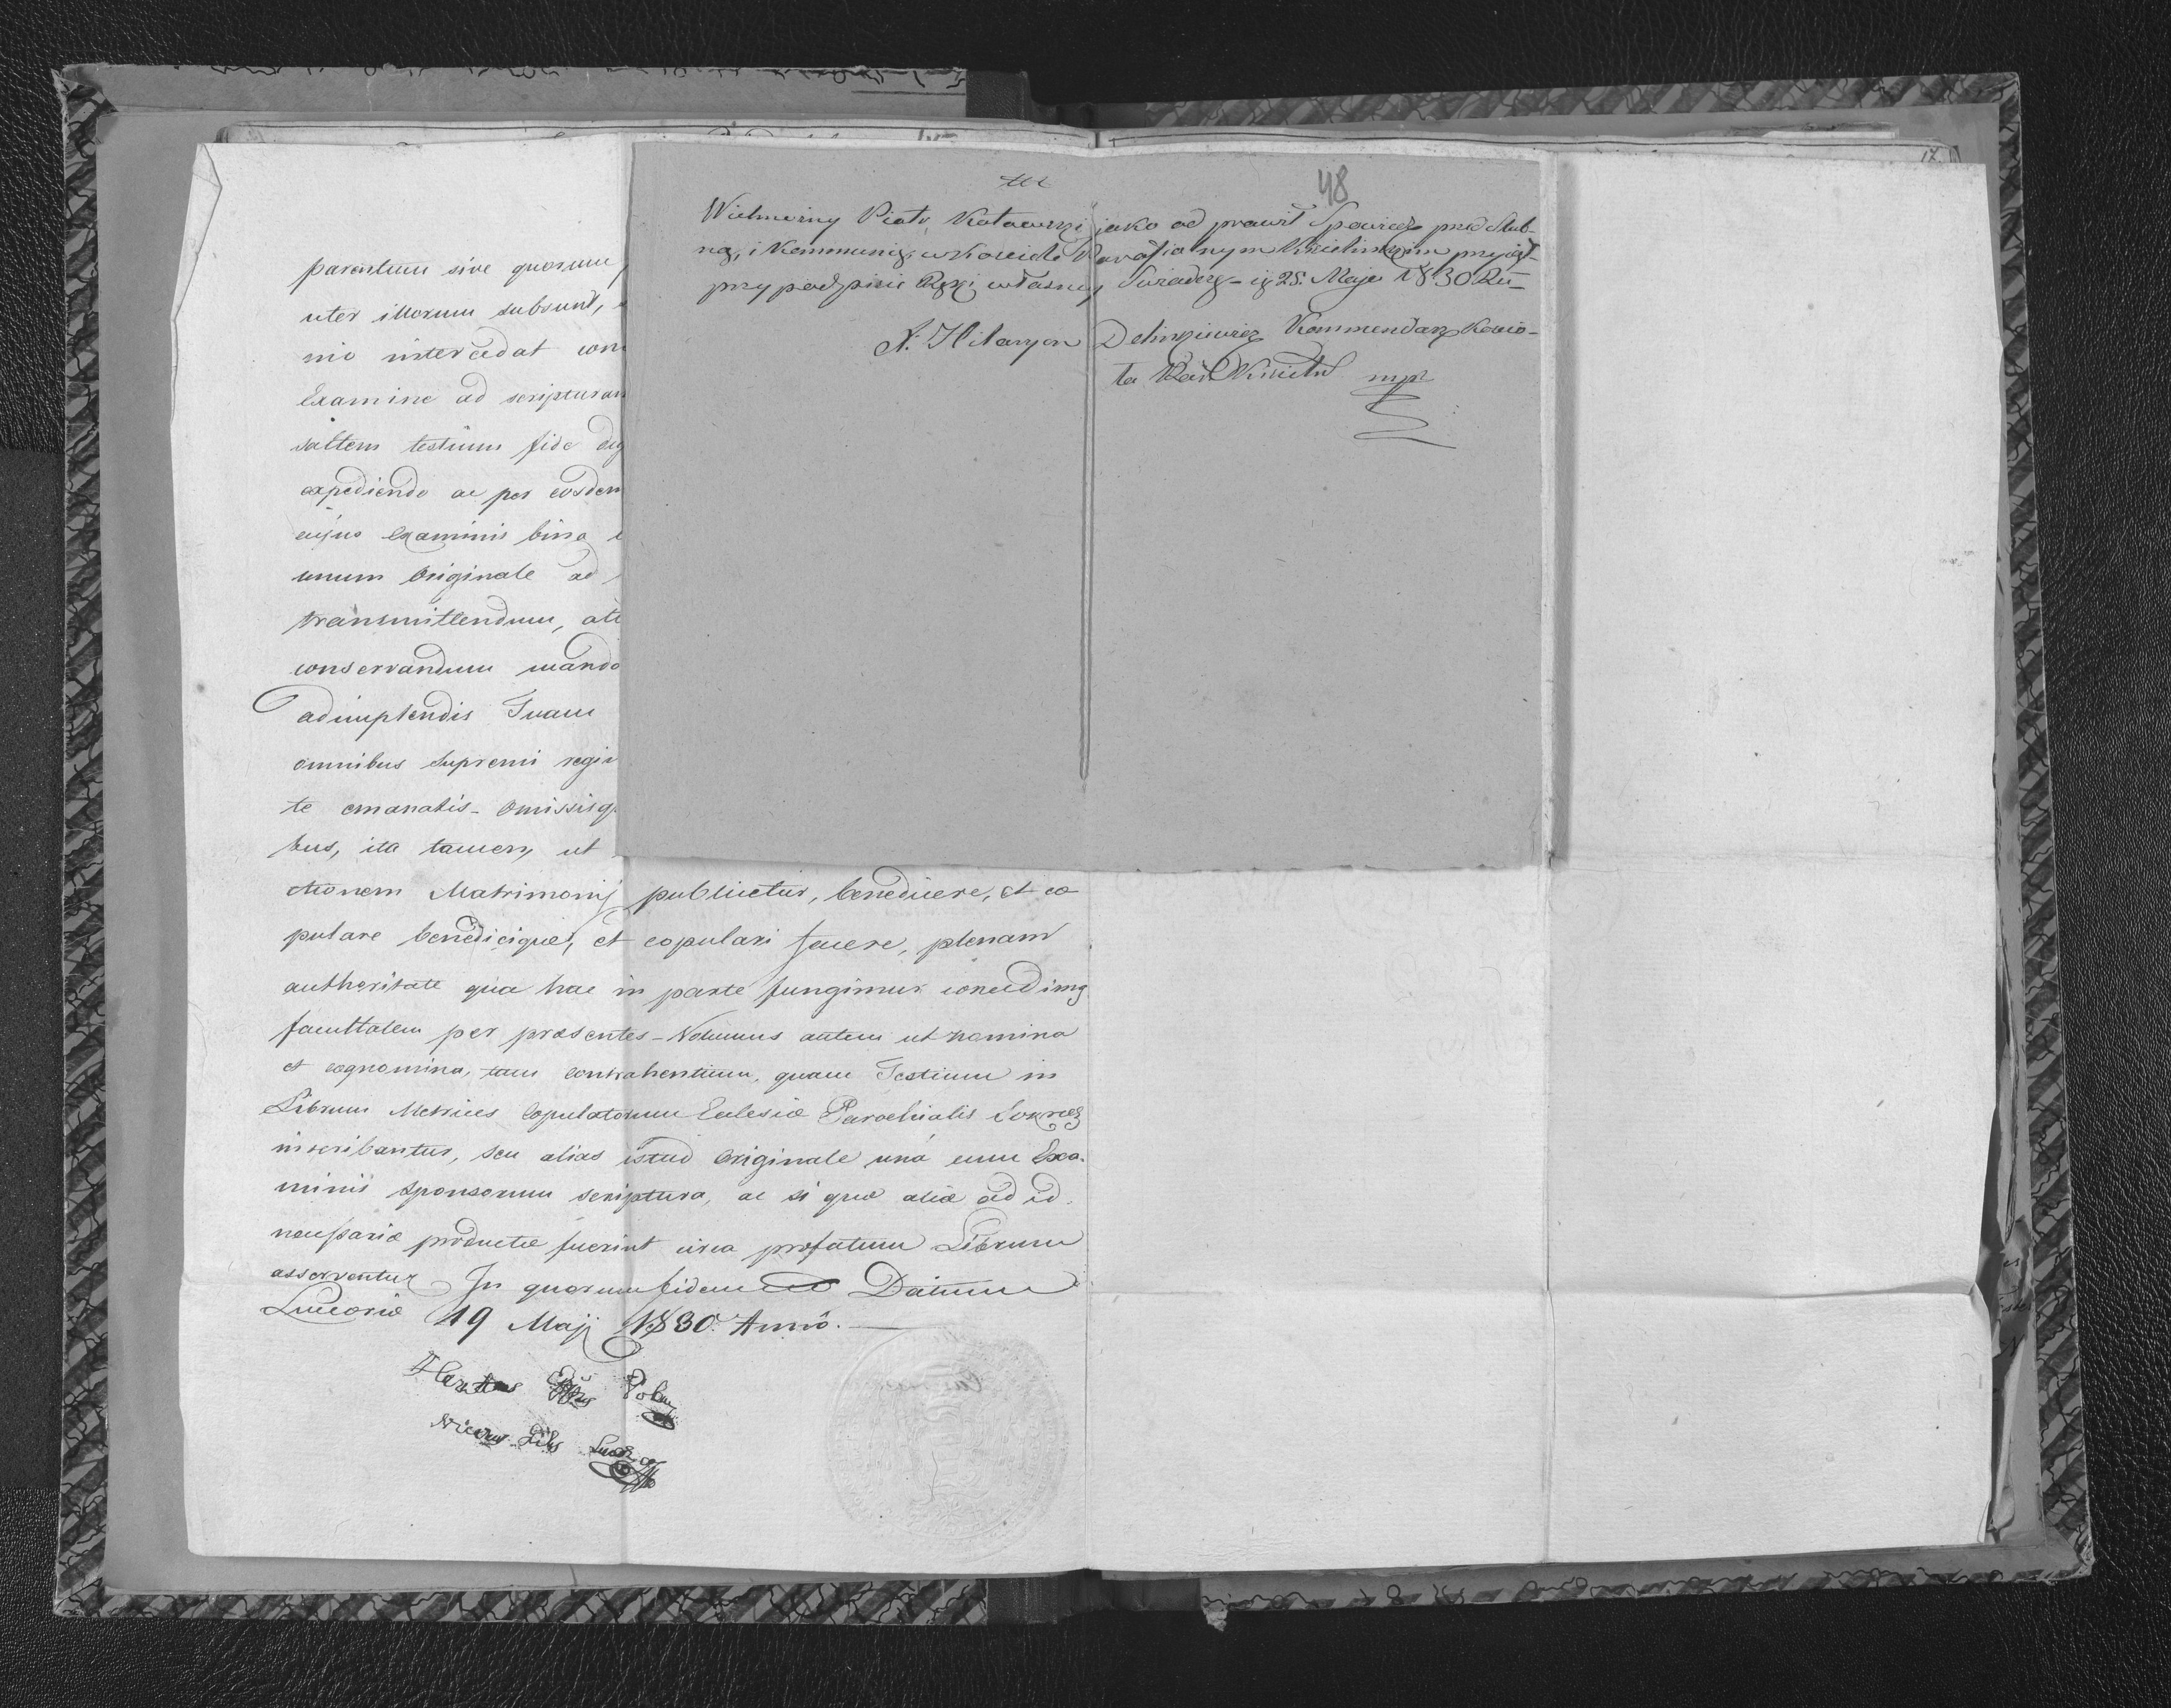 48
Wielmożny Piotr Kotowski jako od prawił Spowiedz przed Slub-
ną, i Kommunią w Kosciele Parafialnym Kisielinskim przyiął
przy podpisie Ręki własney Swiadczę - ig 25. Maja 1830 Ru
X. Hilaryon Delinkiewicz Kommendarz Koscio-
ła Par Kisielin mpr
parentum sive quorum
uter illorum subsunt,
nio intercedat
Examine ad scripturam
saltem testium fide dig
expediendo ac per eosdem
cujus Examinis bina
unum Originale ad
transmittendum,
conservandum mando
adimplendis Tuam
omnibus Supremi regi
te emanatis - Omissisq
bus, ita tamen, ut
ctionem Matrimonij publicetur, benedicere, et co
pulare benedicique, et copulari facere, plenam
authoritate qua hac in parte fungimur concedimg
facultatem per præsentes - Volumus autem ut nomina
et cognomina, tam contrahentium, quam Testium in
Librum Metrices Copulatorum Eclesiæ Parochialis
inscribantur, seu alias istud Originale uná cum Exa-
minis sponsorum scriptura, ac si quæ aliæ ad id
necessariæ productæ fuerint circa præfatum Librum
asserventur In quorum fidem Datum
Luceoriæ 19 Maji 1830 Annô.